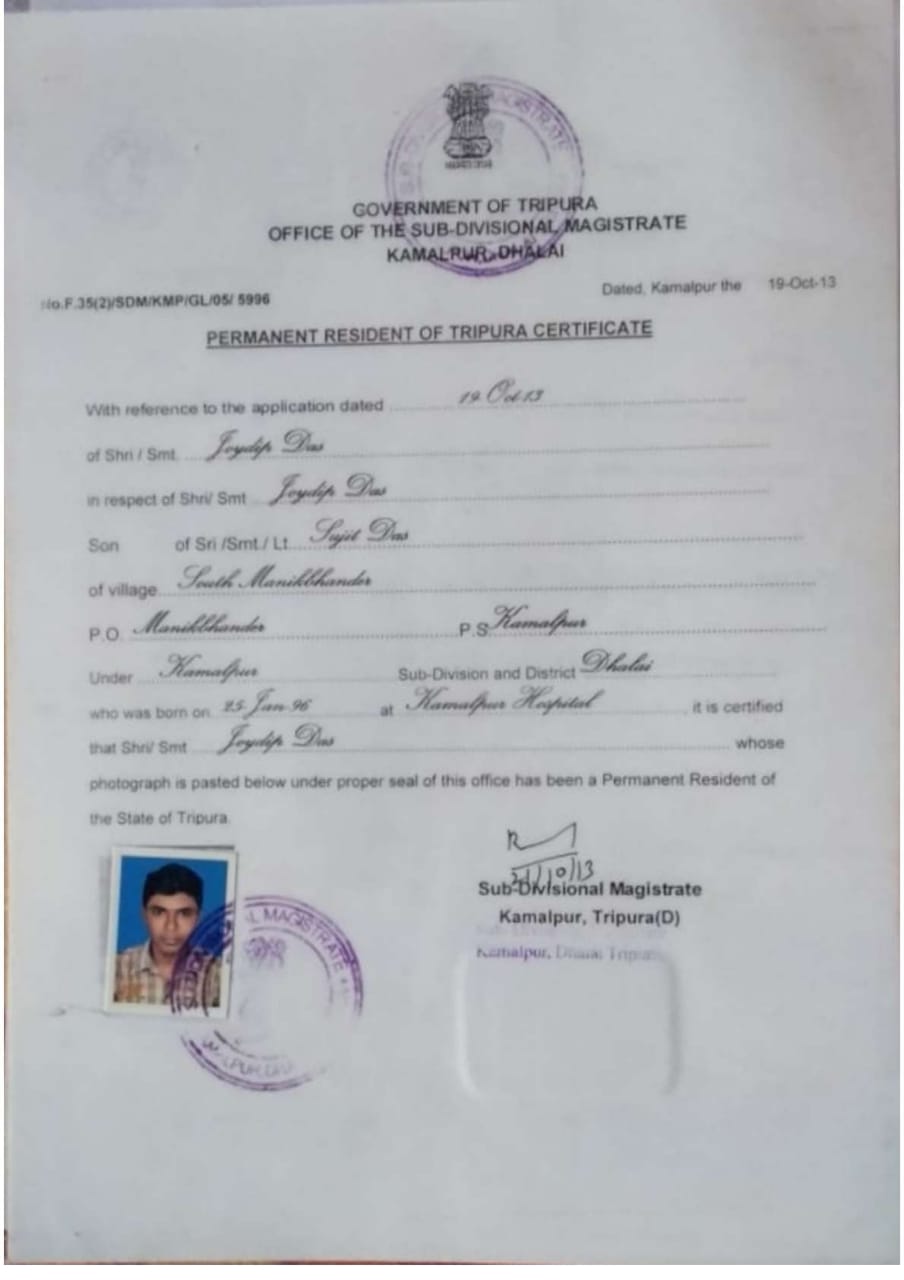 GOVERNMENT OF TRIPURA
OFFICE OF THE SUB-DIVISIONAL MAGISTRATE
KAMALPUR, DHALAI
No.F.35(2)/SDM/KMP/GL/05/ 5996 Dated, Kamalpur the 19-Oct-13
PERMANENT RESIDENT OF TRIPURA CERTIFICATE
With reference to the application dated 19 Oct 13
of Shri / Smt. Joydip Das
in respect of Shri/ Smt Joydip Das
Son of Sri /Smt./ Lt. Sujit Das
of village South Manikbhander
P.O. Manikbhander P.S Kamalpur
Under Kamalpur Sub-Division and District Dhalai
who was born on 25 Jan 96 at Kamalpur Hospital , it is certified
that Shri/ Smt Joydip Das whose
photograph is pasted below under proper seal of this office has been a Permanent Resident of
the State of Tripura.
/10/13
Sub-Divisional Magistrate
Kamalpur, Tripura(D)
Kamalpur, Dhalai Tripura
L MAGISTRATE